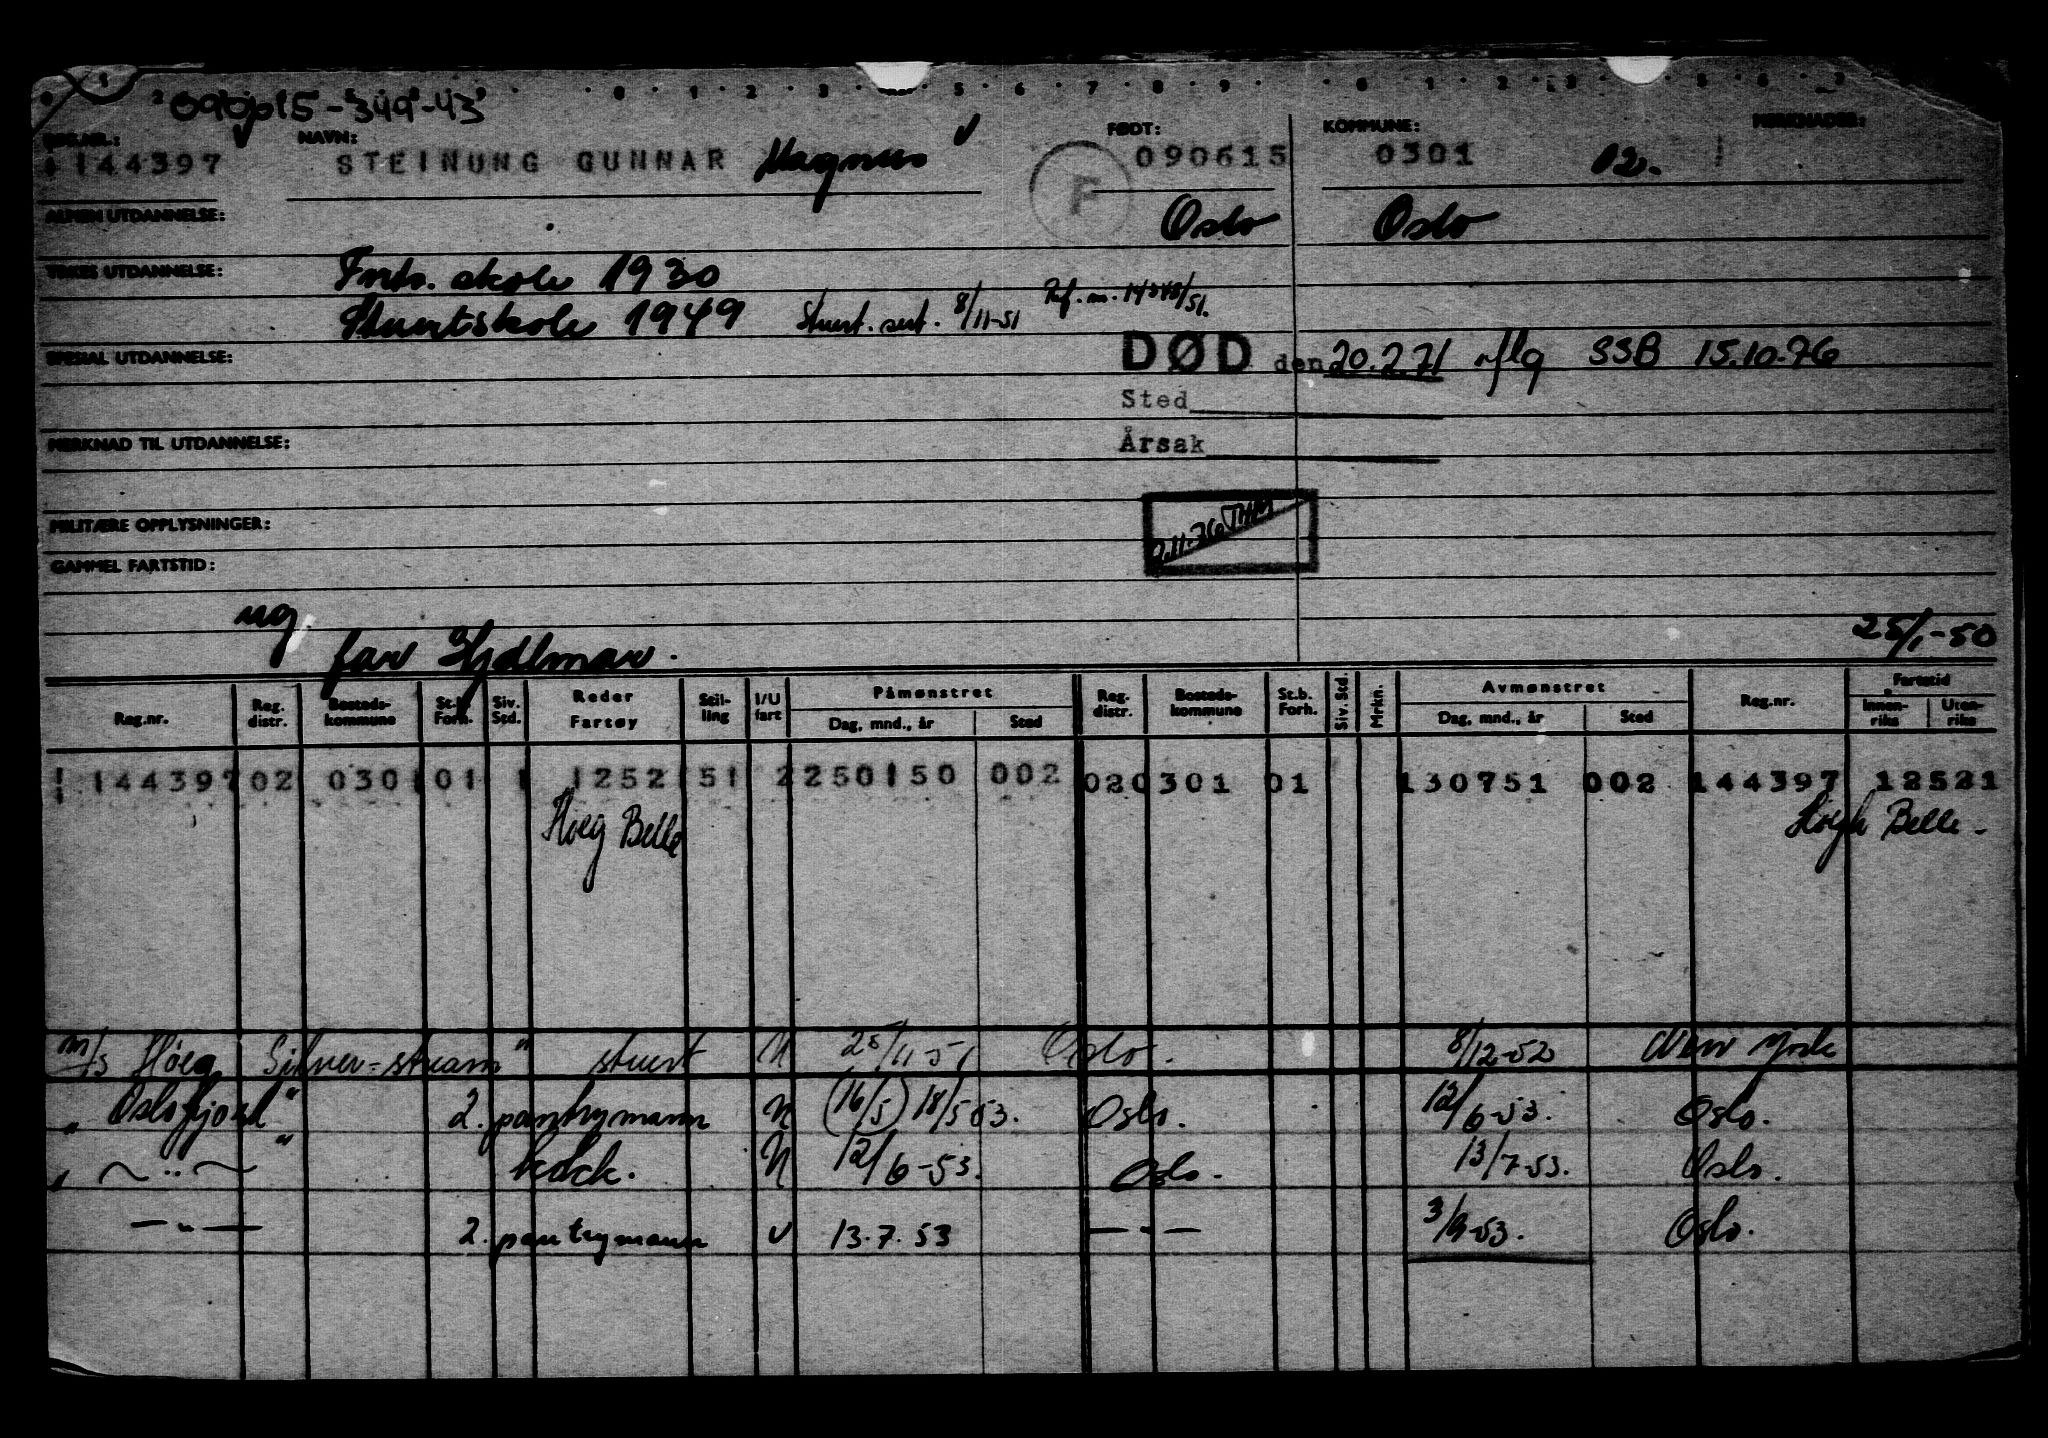 090615-349-43
REG.NR.: NAVN: FØDT: KOMMUNE: MERKNADER:
144397 STEINUNG GUNNAR Magnus 090615 0301 02.
F
ALMEN UTDANNELSE: Oslo Oslo
YRKES UTDANNELSE: Forts. skole 1930
Stuertskole 1949 Stuert. sert. 8/11-51
DØD den 20.2.71 iflg SSB 15.10.76
SPESIAL UTDANNELSE:
Sted
MERKNAD TIL UTDANNELSE: Årsak
MILITÆRE OPPLYSNINGER: 9.11.76
GAMMEL FARTSTID:
ug
far Hjalmar. 25/1-50
Reg.nr. Reg. distr. Bosteds-kommune St.b. Forh. Siv. Std. Reder Fartøy Stil-ling I/U fart Påmønstret Dag, mnd., år Sted Reg. distr. Bosteds-kommune St.b. Forh. Siv. Std. Mrkn. Avmønstret Dag, mnd., år Sted Reg.nr. Fartstid Innen-riks Uten-riks
144397 02 0301 01 1 1252 51 2 250150 002 02 0301 01 130751 002 144397 12521
Høeg Belle Høegh Belle -
m/s Høeg Silver-stream" stuert U 25/11 51 Oslo. 8/12-52 New York
" Oslofjord" 2. pantrymann U (16/5) 18/5 53. Oslo. 12/6-53. Oslo.
" — " — " kokk. U 12/6-53. Oslo. 13/7-53. Oslo.
— " — 2. pantrymann U 13.7.53 — " — 3/9-53. Oslo.